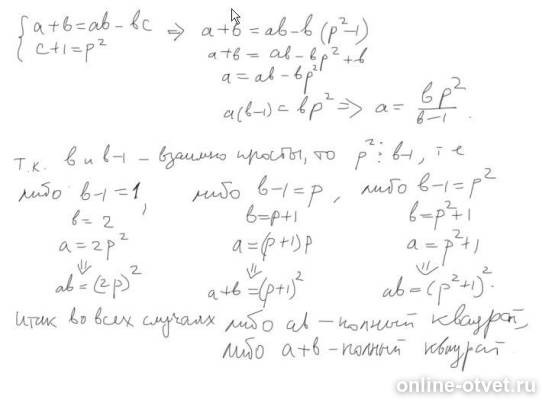 { a+b=ab-bc ⇒ a+b=ab-b(p²-1)
c+1=p² a+b=ab-bp²+b
a=ab-bp²
a(b-1)=bp² ⇒ a=bp²/(b-1).
т.к. b и b-1 - взаимно просты, то p²⋮b-1, т е
либо b-1=1, либо b-1=p, либо b-1=p²
b=2 b=p+1 b=p²+1
a=2p² a=(p+1)p a=p²+1
⇓ ⇓ ⇓
ab=(2p)² a+b=(p+1)² ab=(p²+1)².
итак во всех случаях либо ab - полный квадрат,
либо a+b - полный квадрат
online-otvet.ru